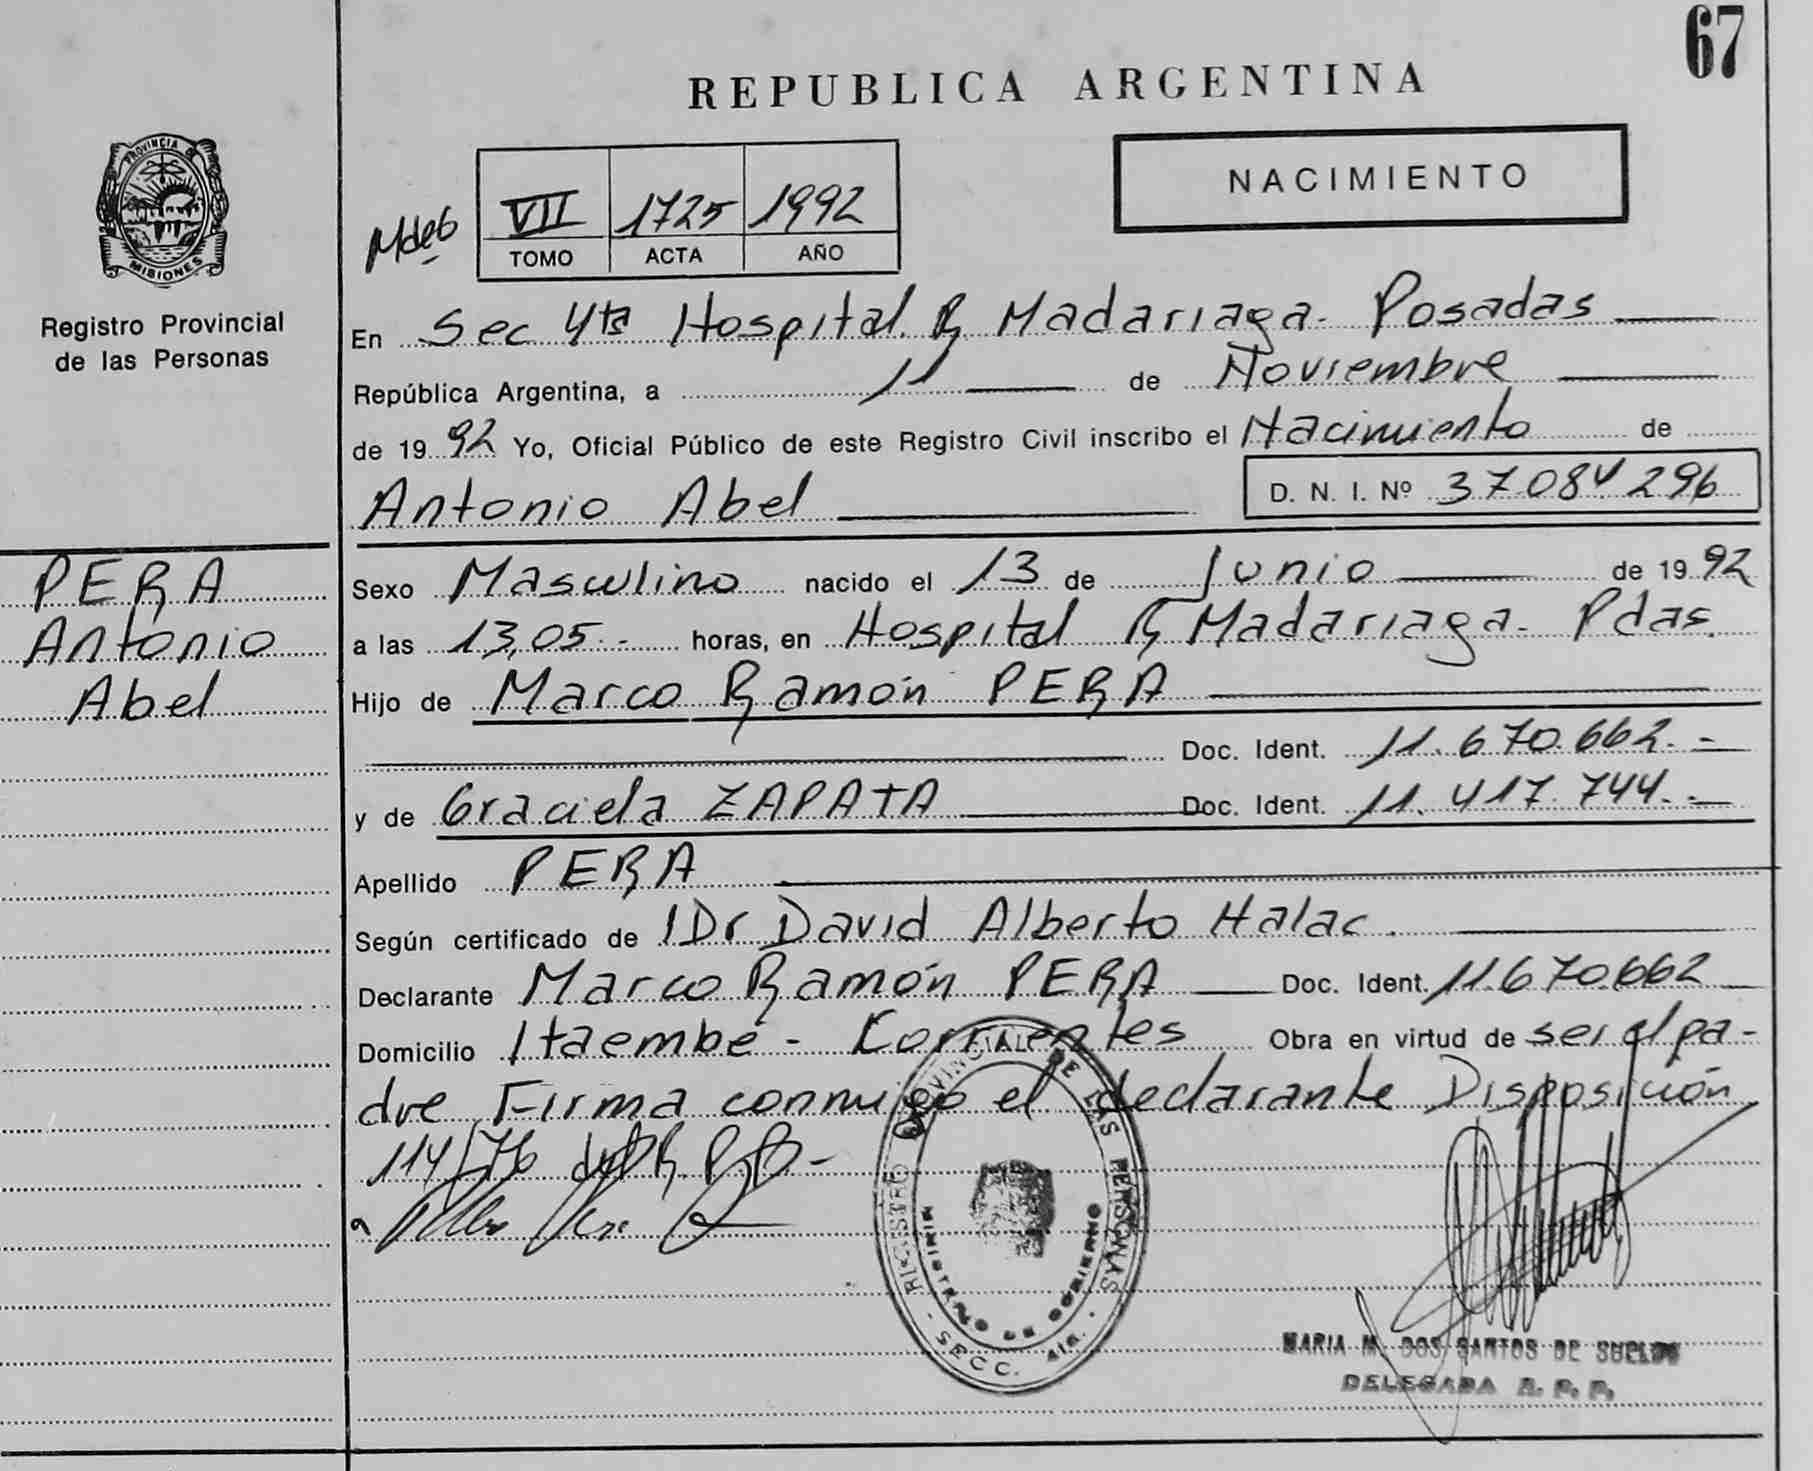 67
REPUBLICA ARGENTINA
NACIMIENTO
PROVINCIA DE
MISIONES
Registro Provincial
de las Personas
VII 1725 1992
TOMO ACTA AÑO
En Sec 4ta Hospital R Madariaga - Posadas
República Argentina, a 11 de Noviembre
de 1992 Yo, Oficial Público de este Registro Civil inscribo el Nacimiento de
Antonio Abel D. N. I. Nº 37.084.296
PERA
Antonio
Abel
Sexo Masculino nacido el 13 de Junio de 1992
a las 13,05.- horas, en Hospital R Madariaga - Pdas.
Hijo de Marco Ramón PERA
Doc. Ident. 11.670.662.-
y de Graciela ZAPATA Doc. Ident. 11.417.744.-
Apellido PERA
Según certificado de Dr David Alberto Halac.
Declarante Marco Ramón PERA Doc. Ident. 11.670.662
Domicilio Itaembé - Corrientes Obra en virtud de ser el pa-
dre Firma conmigo el declarante Disposición
114/76
REGISTRO PROVINCIAL DE LAS PERSONAS
MINISTERIO DE GOBIERNO
SECC. 4ta.
MARIA M. DOS SANTOS DE
DELEGADA R. P. P.